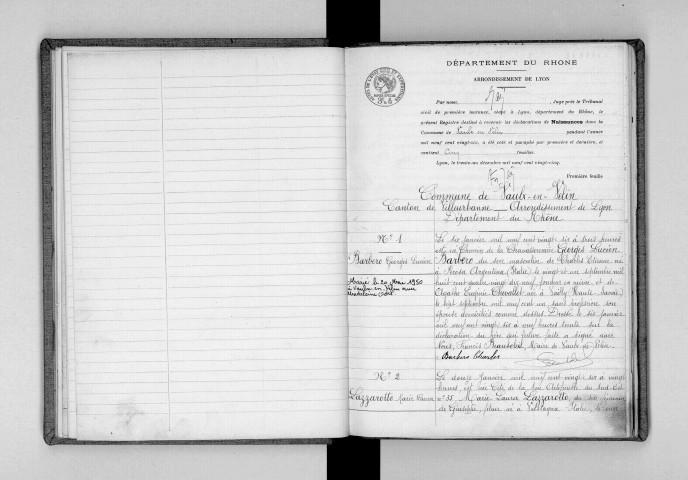 DÉPARTEMENT DU RHÔNE
ARRONDISSEMENT DE LYON
Par nous, Juge près le Tribunal
civil de première instance, séant à Lyon, département du Rhône, le
présent Registre destiné à recevoir les déclarations de Naissances dans la
Commune de Vaulx en Velin pendant l'année
mil neuf cent vingt-six, a été coté et paraphé par première et dernière, et
contient Cinq feuilles.
Lyon, le trente-un décembre mil neuf cent vingt-cinq.
Première feuille
Commune de Vaulx-en-Velin
Canton de Villeurbanne _ Arrondissement de Lyon
Département du Rhône
N° 1
Barbero Georges Lucien
Marié le 20 Mai 1950
à Vaulx-en-Velin avec
Madeleine
Le six janvier mil neuf cent vingt six à huit heures
est né Chemin de la Georges Lucien
Barbero du sexe masculin de Charles Etienne né
à Argentina (Italie) le vingt et un septembre mil
huit cent quatre vingt dix neuf, et de
Eugénie Chevallet née à (Haute Savoie)
le sept septembre mil neuf cent un sans profession son
épouse domiciliés comme dessus. Dressé le six janvier
mil neuf cent vingt six à heures trente sur la
déclaration du père qui lecture faite a signé avec
Nous, Francis Maire de Vaulx-en-Velin
Barbero Charles
N° 2
Lazzarotto Marie Laura
Le douze Janvier mil neuf cent vingt six à vingt
heures, est née Cité de la Soie Artificielle du Sud-Est
n° 55 Marie Laura Lazzarotto, du sexe féminin
de Giuseppe, né à Valstagna Italie, le onze